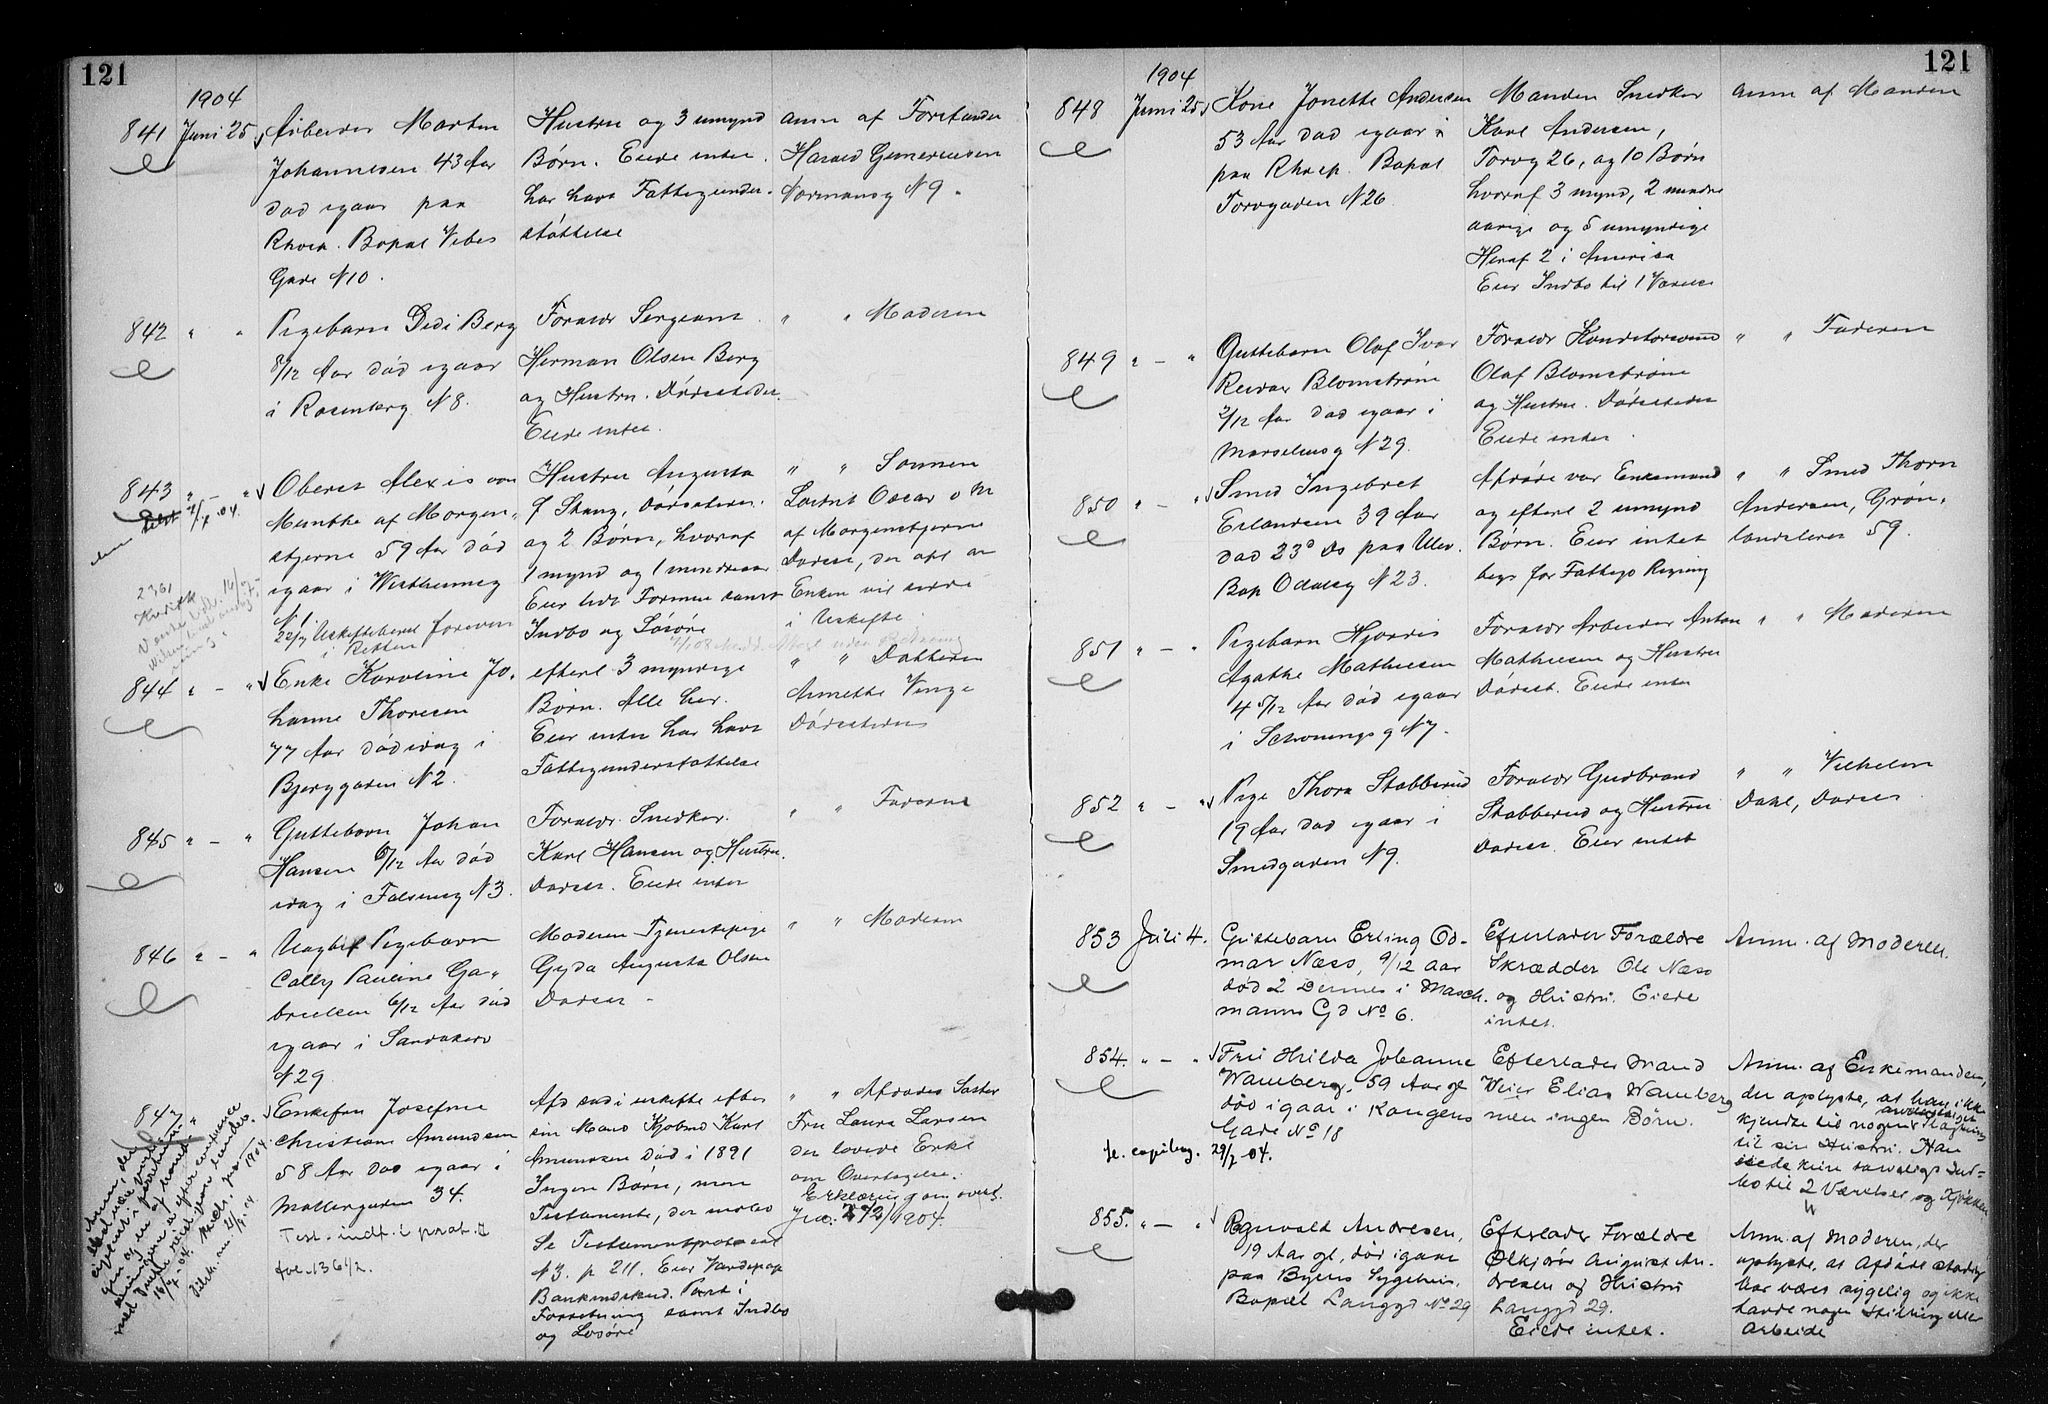 121
1904
841 Juni 25
Arbeider Morten
Johannesen 43 Aar
død igaar paa
Rhosp. Bopæl Vibes
Gade N 10.
Hustru og 3 umynd
Børn. Eiede intet.
har havt Fattigunder-
støttelse
anm af Forstander
Harald Gundersen
Normansg N 9.
842 " "
Pigebarn Didi Berg
8/12 Aar død igaar
i Rosenberg N 8.
Foræld Sergeant
Herman Olsen Berg
og Hustru. Dødsstedet.
Eiede intet.
" " Moderen
843 " - "
Oberst Alexis von
Munthe af Morgen-
stjerne 59 Aar død
igaar i
N 1.
22/7 Uskiftebevil forevist
i Retten
Hustru Augusta
f Stang, dødsstedet.
og 2 Børn, hvoraf
1 mynd og 1 mindreaar
Eier lidt Formue samt
Indbo og Løsøre
" " Sønnen
Løitnt Oscar v M
af Morgenstjerne
Dødsst, der opl at
Enken vil sidde
i Uskifte
844 " - "
Enke Karoline Jo-
hanne Thoresen
77 Aar død idag i
Bjerggaden N 2.
efterl 3 myndige
Børn. Alle her.
Eier intet har havt
Fattigunderstøttelse
" " Datteren
Annette Vinge
Dødsstedet
845 " - "
Guttebarn Johan
Hansen 6/12 Aar død
idag i Falsensg N 3.
Foræld. Snedker
Karl Hansen og Hustru.
Dødsst. Eiede intet
" " Faderen
846 " - "
Uægte Pigebarn
Cally Pauline Ga-
brielsen 6/12 Aar død
igaar i Sandakerv
N 29
Moderen Tjenestepige
Gyda Augusta Olsen
Dødsst
" " Moderen
847 "
Enkefru Josefine
Christiane Amundsen
58 Aar død igaar i
Møllergaden 34.
Test. indt. i prot. 2
fol. 136 1/2.
Afd sad i uskifte efter
sin Mand Kjøbmd Karl
Amundsen Død i 1891
Ingen Børn, men
Testamente, der
Se Testamentprotocol
N 3. p 211. Eier Værdipap
Bankindskud. Pant i
Forretning samt Indbo
og Løsøre
" " Afdødes Søster
Fru Laura Larsen
der lovede Erkl
om Overtagelse.
Erklæring om overt.
Jno. 272/1904.
121
1904
848 Juni 25
Kone Jonette Andersen
53 Aar død igaar
paa Rhosp. Bopæl
Torvgaden N 26
Manden Snedker
Karl Andersen,
Torvg 26, og 10 Børn
hvoraf 3 mynd, 2 mindre
aarige og 5 umyndige
Heraf 2 i Amerika
Eier Indbo til 1 Værelse
anm af Manden
849 " - "
Guttebarn Olaf Ivar
Reidar Blomstrøm
2/12 Aar død igaar i
Marselisg N 29.
Foræld Konditorsvend
Olaf Blomstrøm
og Hustru. Dødsstedet
Eiede intet.
" " Faderen
850 " - "
Smed Ingebret
Erlandsen 39 Aar
død 23d Ds paa Ullev.
Bop Odalsg N 23.
Afdøde var Enkemand
og efterl 2 umynd
Børn. Eier intet
begr for Fattigv Regning
" " Smed Thorn
Andersen, Grøn-
landsleret 59.
851 " - "
Pigebarn Hjørdis
Agathe Mathiesen
4 5/12 Aar død igaar
i Schouningsg N 7.
Foræld Arbeider Anton
Mathiesen og Hustru
Dødsst. Eiede intet
" " Moderen
852 " - "
Pige Thora Stabberud
19 Aar død igaar i
Smedgaden N 9.
Foræld Gudbrand
Stabberud og Hustru
Dødsst. Eier intet
" " Vilhelm
Dahl, Dødsst
853 Juli 4.
Guttebarn Erling Od-
mar Næss, 9/12 Aar
død 2 Dennes i Masch-
manns Gd No 6.
Efterlader Forældre
Skrædder Ole Næss
og Hustru. Eiede
intet.
Anm. af Moderen.
854. " - "
Fru Hilda Johanne
Wamberg, 59 Aar gl
død igaar i Kongens
Gade No 18
29/7 04.
Efterlader Mand
Veier Elias Wamberg
men ingen Børn.
Anm. af Enkemanden,
der oplyste, at han ikke
kjendte til nogen
til sin Hustru. Han
eiede kun
bo til 2 Værelser og Kjøkken
855. " - "
Ragnvald Andresen,
19 Aar gl, død igaar
paa Byens Sygehus.
Bopæl Langgd No 29
Efterlader Forældre
Ølkjører August An-
dresen og Hustru
Langgd 29.
Eiede intet.
Anm. af Moderen, der
oplyste, at Afdøde stadig
har været sygelig og ikke
havde nogen Stilling eller
Arbeide